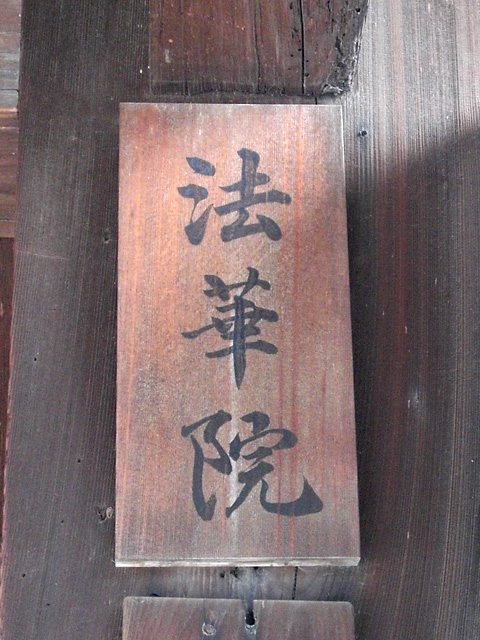 法華院